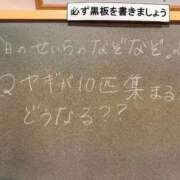 必ず黒板を書きましょう
日のせいらのなぞなぞ。
Q ヤギが10匹集まる
どうなる??